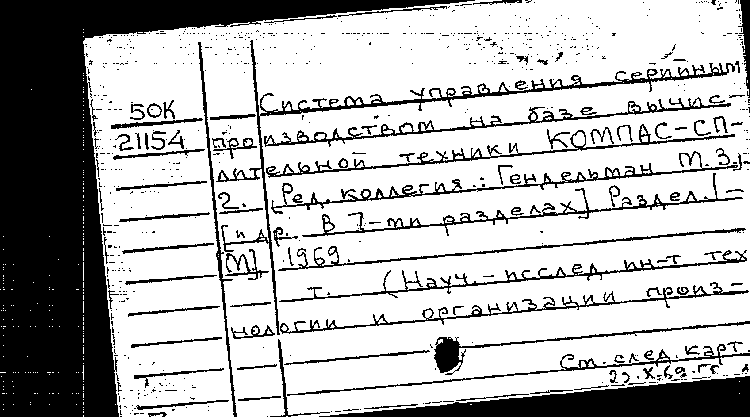 50К
21154
Система управления серийным
производством на базе вычис-
лительной техники КОМПАС-СП-
2. [Ред. коллегия.: Гендельман М.З.
[и др. В 7-ми разделах] Раздел.1-
[М], 1969.
т. (Науч.-исслед. ин-т тех
нологии и организации произ-
См. след. карт.